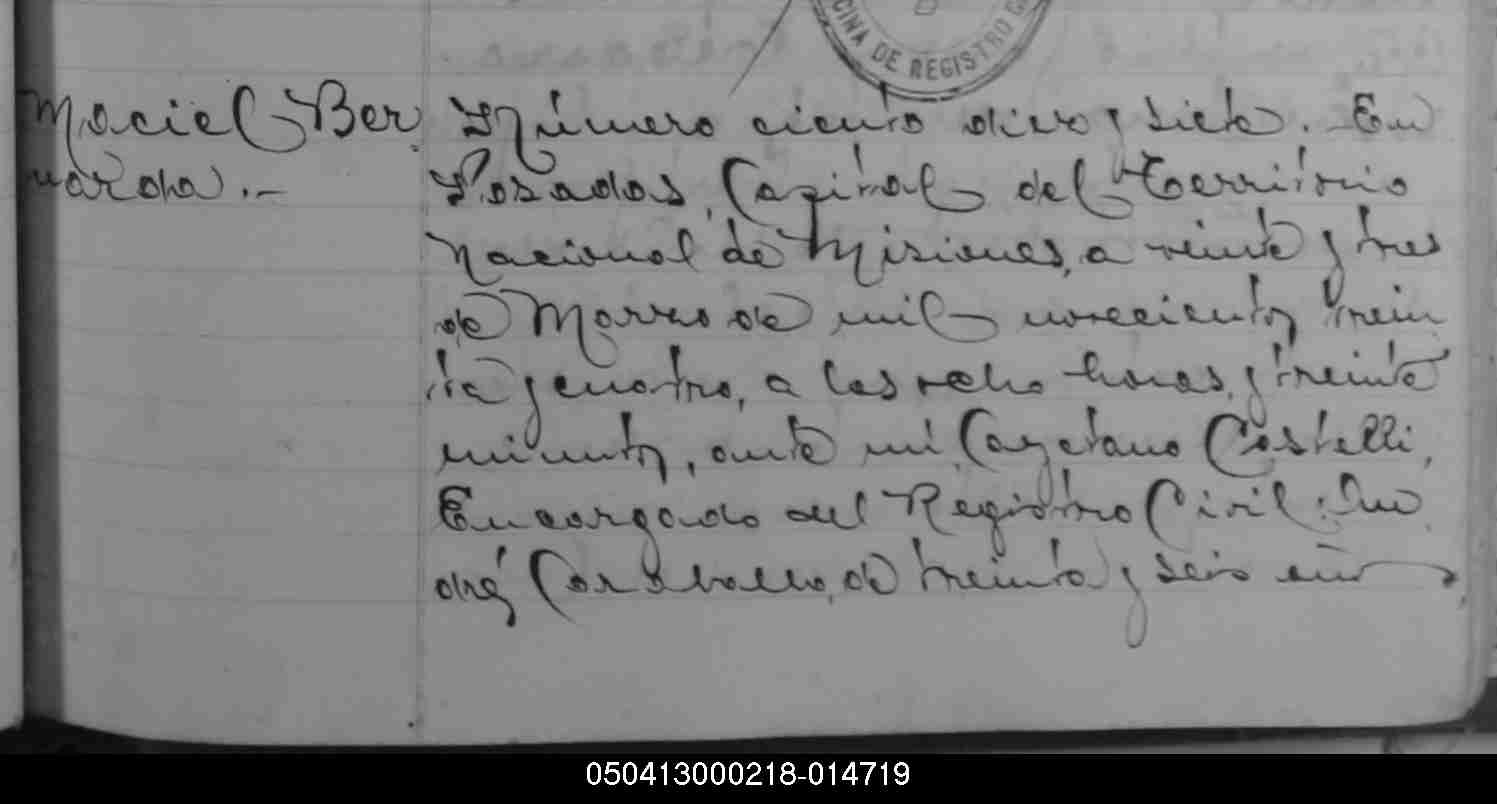 CINA DE REGISTRO C
Maciel Ber
narda.-
Número ciento diez y siete. En
Posadas, Capital del Territorio
Nacional de Misiones, a veinte y tres
de Marzo de mil novecientos trein
ta y cuatro, a las ocho horas y treinta
minutos, ante mi Cayetano Castelli,
Encargado del Registro Civil: An
drés Caraballo, de treinta y seis años,
050413000218-014719